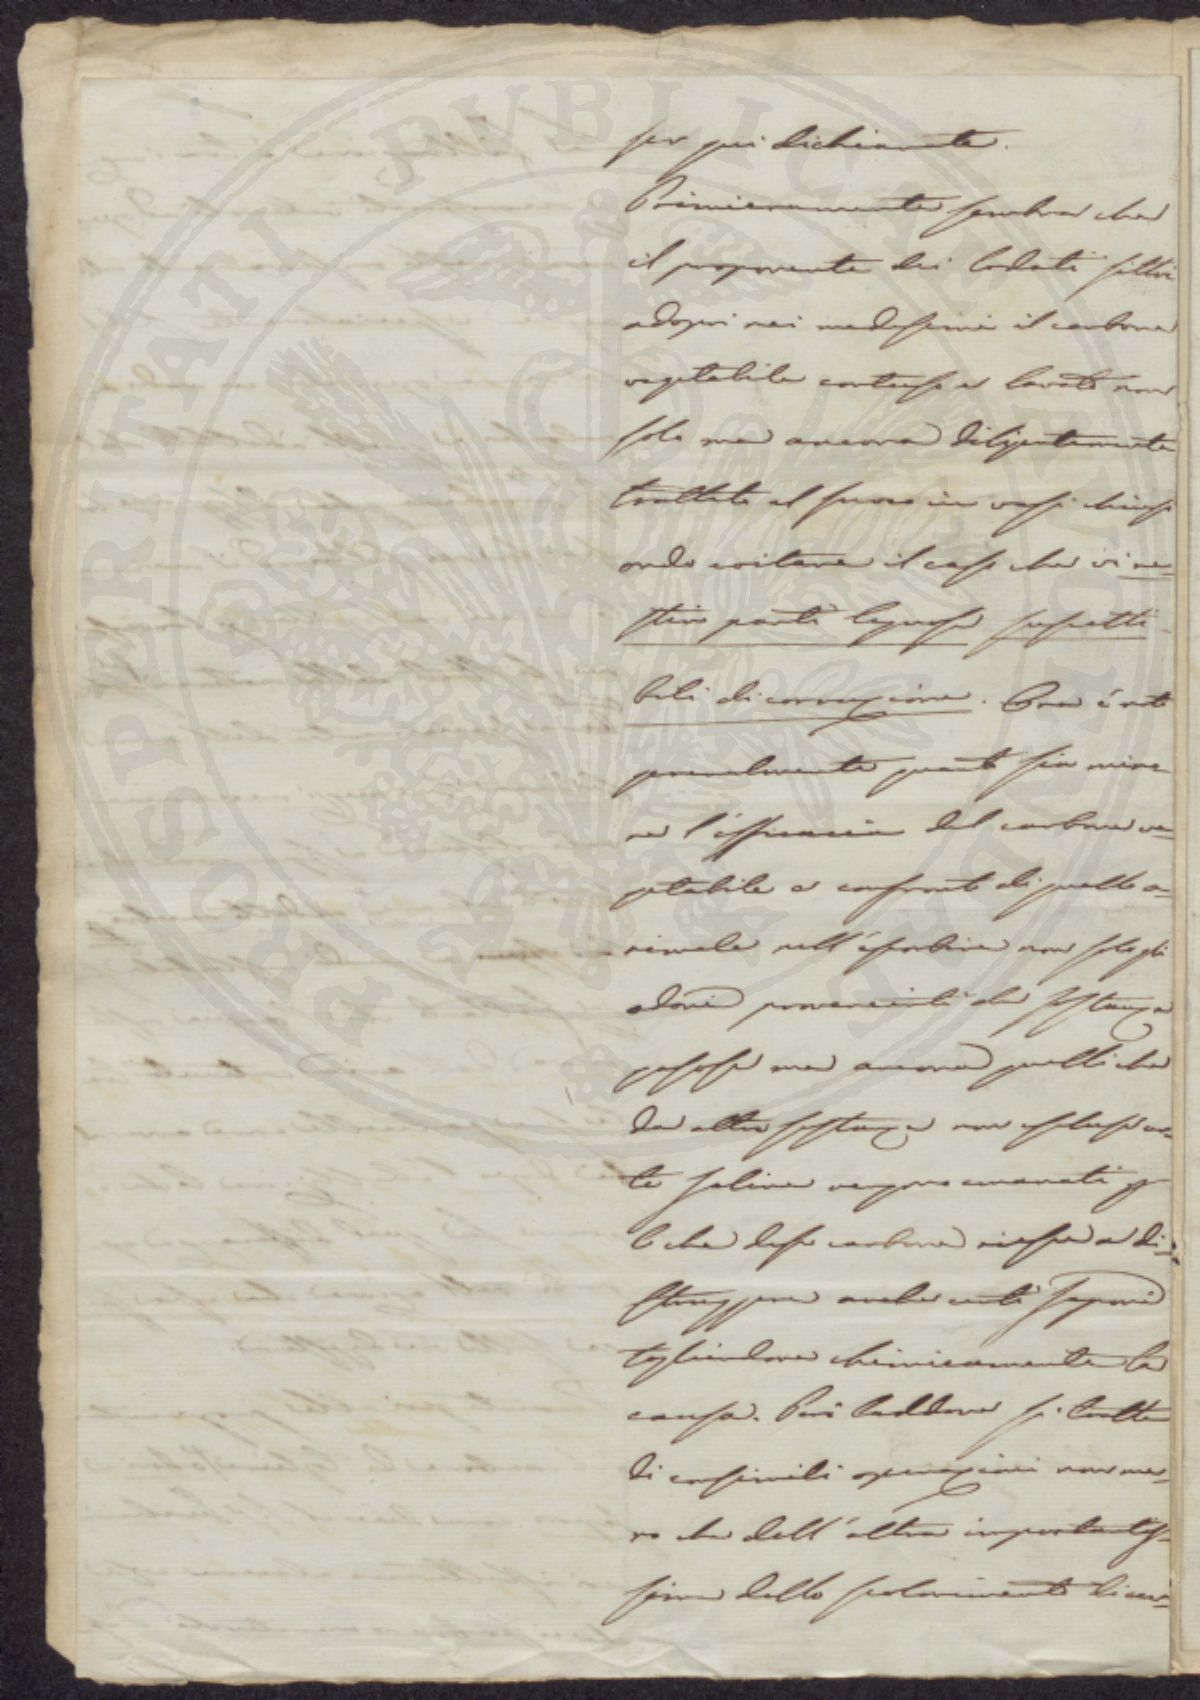 per qui dichiarate.
Primieramente sembra che
il proponente dei lodati filtri
adopri nei medesimi il carbone
vegetabile contuso e lavato non
solo ma ancora diligentemente
trattato al fuoco in vasi chiusi
onde evitare il caso che vi re-
stino parti legnose suscetti
bili di corruzione. Ora è noto
generalmente quanto sia mino-
re l'efficacia del carbone ve-
getabile a confronto di quello a-
nimale nell'assorbire non solo gli
odori provenienti da sostanze
gasose ma ancora quelli che
da altre sostanze non escluse
te saline vengono emanati
lo che desso carbone riesce a di-
struggere anche certi sapori
togliendone chimicamente la
causa. Però laddove si tratta
di consimili operazioni non me-
no che dell'altra importantis-
sima dello scoloramento di
PROSPERITATI PVBLICAE